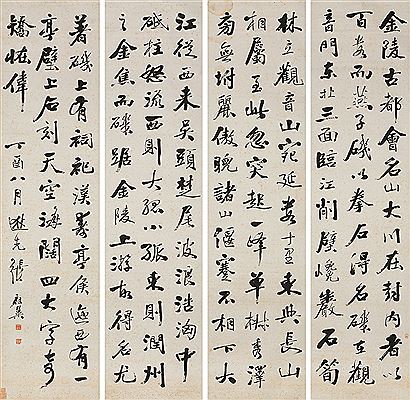 金陵古都會名山大川在封內者以
百數而燕子磯以拳石得名磯在觀
音門東北三面臨江削壁巉巖石筍
林立觀音山宛延數十里東與長山
相屬至此忽突起一峰單椒秀澤
旁無附麗傲睨諸山偃蹇不相下大
江從西來吳頭楚尾波浪浩淘中
砥柱怒流西則大孤小孤東則潤州
之金焦而磯踞金陵上游故得名尤
著磯上有祠祀漢壽亭侯迤西有一
亭壁上石刻天空海闊四大字奇
矯壯偉
丁酉八月 先張